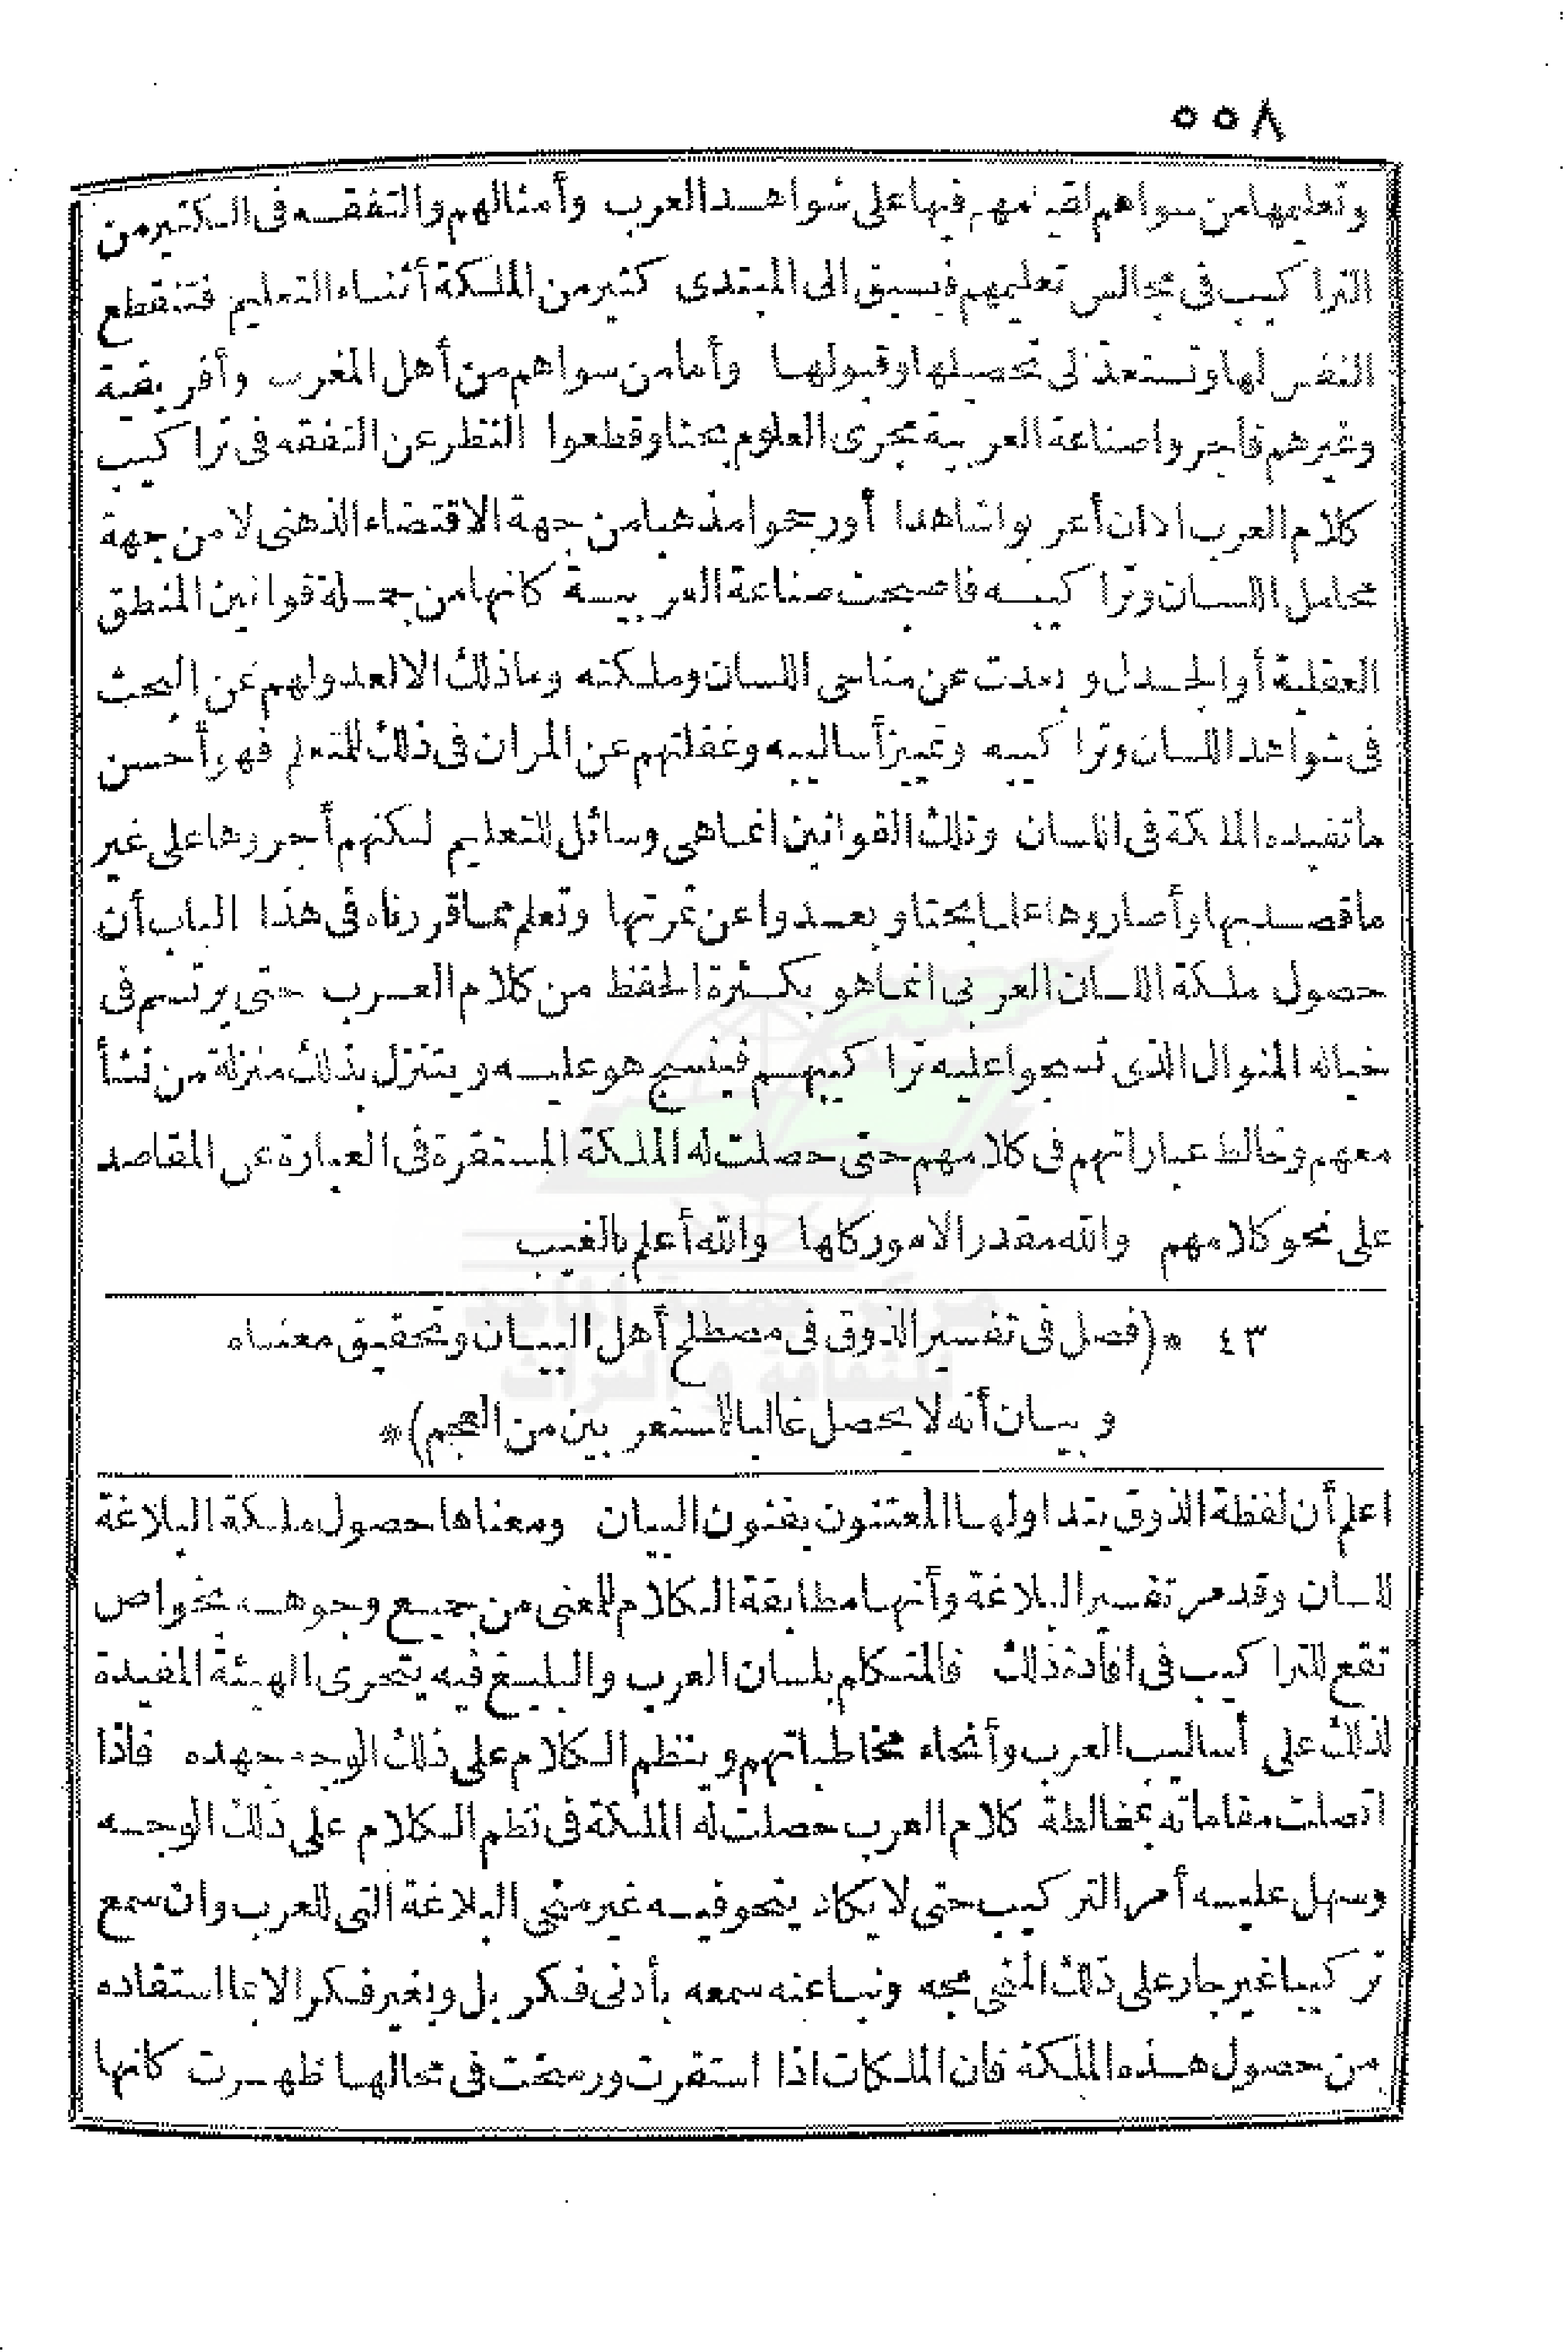 ٥٥٨
وتعليمها من سواهم لقيامهم فيها على شواهد العرب وأمثالهم والتفقه فى الكثير من
التراكيب فى مجالس تعليمهم فيسبق الى المبتدى كثير من الملكة أثناء التعليم فتنقطع
النفس لها وتستعد الى تحصيلها وقبولها وأما من سواهم من أهل المغرب وأفريقية
وغيرهم فاجروا صناعة العربية مجرى العلوم بحثا وقطعوا النظر عن التفقه فى تراكيب
كلام العرب الا ان أعربوا شاهدا أو رجحوا مذهبا من جهة الاقتضاء الذهنى لا من جهة
محامل اللسان وتراكيبه فاصبحت صناعة العربية كانها من جملة قوانين المنطق
العقلية أو الجدل وبعدت عن مناحى اللسان وملكته وما ذلك الا لعدولهم عن البحث
فى شواهد اللسان وتراكيبه وتمييز أساليبه وغفلتهم عن المران فى ذلك للمتعلم فهو أحسن
ما تفيده الملكة فى اللسان وتلك القوانين انما هى وسائل للتعليم لكنهم أجروها على غير
ما قصد بها وأصاروها علما بحتا وبعدوا عن ثمرتها وتعلم مما قررناه فى هذا الباب أن
حصول ملكة اللسان العربى انما هو بكثرة الحفظ من كلام العرب حتى يرتسم فى
خياله المنوال الذى نسجوا عليه تراكيبهم فينسج هو عليه ويتنزل بذلك منزلة من نشأ
معهم وخالط عباراتهم فى كلامهم حتى حصلت له الملكة المستقرة فى العبارة عن المقاصد
على نحو كلامهم والله مقدر الامور كلها والله أعلم بالغيب
٤٣ *(فصل فى تفسير الذوق فى مصطلح أهل البيان وتحقيق معناه
وبيان أنه لا يحصل غالبا للمستعربين من العجم)*
اعلم أن لفظة الذوق يتداولها المعتنون بفنون البيان ومعناها حصول ملكة البلاغة
للسان وقد مر تفسير البلاغة وأنها مطابقة الكلام للمعنى من جميع وجوهه بخواص
تقع للتراكيب فى افادة ذلك فالمتكلم بلسان العرب والبليغ فيه يتحرى الهيئة المفيدة
لذلك على أساليب العرب وأنحاء مخاطباتهم وينظم الكلام على ذلك الوجه جهده فاذا
اتصلت مقاماته بمخالطة كلام العرب حصلت له الملكة فى نظم الكلام على ذلك الوجه
وسهل عليه أمر التركيب حتى لا يكاد ينحو فيه غير منحى البلاغة التى للعرب وان سمع
تركيبا غير جار على ذلك المنحى مجه ونبا عنه سمعه بأدنى فكر بل وبغير فكر الا بما استفاده
من حصول هذه الملكة فان الملكات اذا استقرت ورسخت فى محالها ظهرت كانها
مركز جمعة الماجد
للثقافة والتراث